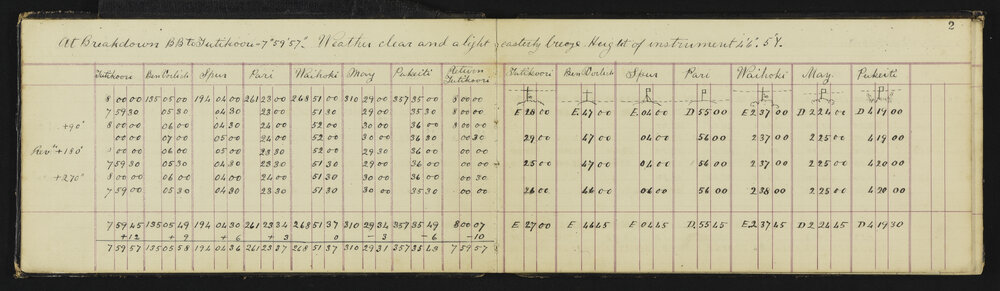 2
At Breakdown BB to Tutikoou = 7°59'57". Weather clear and a light easterly breeze. Height of instrument
Tutikoori Ben Dorlich Spur Pari Waihoki May Pukeiti Return Tutikoori Tutikoori Ben Dorlich Spur Pari Waihoki May. Pukeiti
8 00 00 135 05 00 194 04 00 261 23 00 268 51 00 310 29 00 357 35 00 8 00 00
7 59 30 05 30 04 30 23 00 51 30 29 00 35 30 8 00 00 E 28 00 E 47 00 E 04 00 D 55 00 E 2 37 00 D 2 24 00 D 4 19 00
+90° 8 00 00 06 00 04 00 24 00 52 00 30 00 36 00 8 00 00
00 00 07 00 05 00 24 00 52 00 30 00 36 30 00 30 29 00 47 00 04 00 56 00 2 37 00 2 25 00 4 19 00
Rev.n +180° 00 00 06 00 05 00 23 30 52 00 29 30 36 00 00 00
7 59 30 05 30 04 30 23 30 51 30 29 00 36 00 00 00 25 00 47 00 04 00 56 00 2 37 00 2 25 00 4 20 00
+270° 8 00 00 06 00 04 00 24 00 51 30 30 00 36 00 00 30
7 59 00 05 30 04 30 23 30 51 30 30 00 35 30 00 00 26 00 46 00 06 00 56 00 2 38 00 2 25 00 4 20 00
7 59 45 135 05 49 194 04 30 261 23 34 268 51 37 310 29 34 357 35 49 8 00 07 E 27 00 E 46 45 E 04 45 D 55 45 E 2 37 45 D 2 24 45 D 4 19 30
+12 + 9 + 6 + 3 0 - 3 - 6 -10
7 59 57 135 05 58 194 04 36 261 23 37 268 51 37 310 29 31 357 35 43 7 59 57